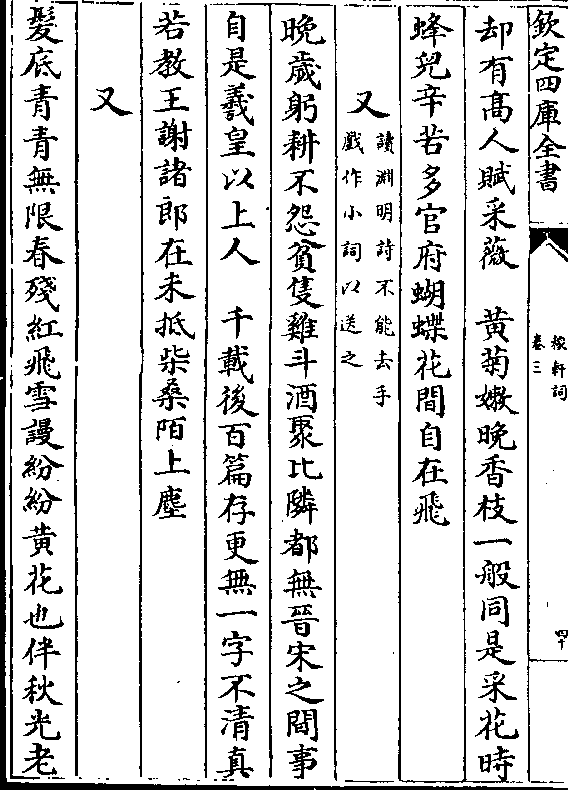 欽定四庫全書
稼軒詞
卷三
四十
却有髙人賦采薇　黄菊嫩晚香枝一般同是采花時
蜂兒辛苦多官府蝴蝶花間自在飛
又
讀淵明詩不能去手
戲作小詞以送之
晚歲躬耕不怨貧隻雞斗酒聚比隣都無晉宋之間事
自是羲皇以上人　千載後百篇存更無一字不清真
若教王謝諸郎在未抵柴桑陌上塵
又
髮底青青無限春殘紅飛雪謾紛紛黄花也伴秋光老